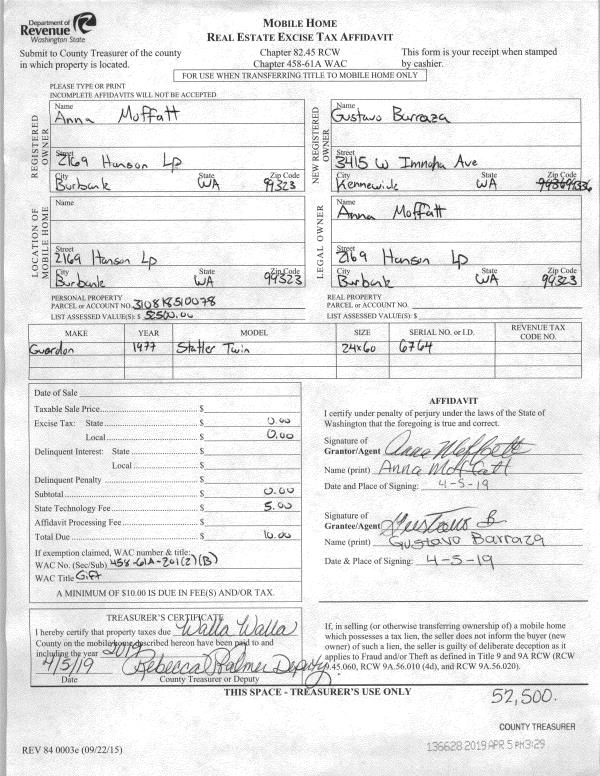 Department of
Revenue
Washington State
MOBILE HOME
REAL ESTATE EXCISE TAX AFFIDAVIT
Submit to County Treasurer of the county
in which property is located.
Chapter 82.45 RCW
Chapter 458-61A WAC
This form is your receipt when stamped
by cashier.
FOR USE WHEN TRANSFERRING TITLE TO MOBILE HOME ONLY
PLEASE TYPE OR PRINT
INCOMPLETE AFFIDAVITS WILL NOT BE ACCEPTED
REGISTERED OWNER
Name
Anna Moffatt
Street
2169 Hanson Lp
City State Zip Code
Burbank WA 99323
NEW REGISTERED OWNER
Name
Gustavo Burraza
Street
3415 W Imnaha Ave
City State Zip Code
Kennewick WA
LOCATION OF MOBILE HOME
Name
Street
2169 Hanson Lp
City State Zip Code
Burbank WA 99323
LEGAL OWNER
Name
Anna Moffatt
Street
2169 Hanson Lp
City State Zip Code
Burbank WA 99323
PERSONAL PROPERTY
PARCEL or ACCOUNT NO. 310818510078
LIST ASSESSED VALUE(S): $ 52500.00
REAL PROPERTY
PARCEL or ACCOUNT NO.
LIST ASSESSED VALUE(S): $
MAKE YEAR MODEL SIZE SERIAL NO. or I.D. REVENUE TAX CODE NO.
Guardon 1977 Statler Twin 24x60 6764
Date of Sale
Taxable Sale Price $
Excise Tax: State $ 0.00
Local $ 0.00
Delinquent Interest: State $
Local $
Delinquent Penalty $
Subtotal $ 0.00
State Technology Fee $ 5.00
Affidavit Processing Fee $
Total Due $ 10.00
If exemption claimed, WAC number & title:
WAC No. (Sec/Sub) 458-61A-201(2)(B)
WAC Title Gift
A MINIMUM OF $10.00 IS DUE IN FEE(S) AND/OR TAX.
AFFIDAVIT
I certify under penalty of perjury under the laws of the State of
Washington that the foregoing is true and correct.
Signature of
Grantor/Agent Anna Moffatt
Name (print) Anna Moffatt
Date and Place of Signing: 4-5-19
Signature of
Grantee/Agent Gustavo B
Name (print) Gustavo Barraza
Date & Place of Signing: 4-5-19
TREASURER'S CERTIFICATE
I hereby certify that property taxes due Walla Walla
County on the mobile home described hereon have been paid to and
including the year 2019
4/5/19 Rebecca Palmer Deputy
Date County Treasurer or Deputy
If, in selling (or otherwise transferring ownership of) a mobile home
which possesses a tax lien, the seller does not inform the buyer (new
owner) of such a lien, the seller is guilty of deliberate deception as it
applies to Fraud and/or Theft as defined in Title 9 and 9A RCW (RCW
9.45.060, RCW 9A.56.010 (4d), and RCW 9A.56.020).
THIS SPACE - TREASURER'S USE ONLY
52,500.
COUNTY TREASURER
136628 2019 APR 5 PM 3:29
REV 84 0003e (09/22/15)